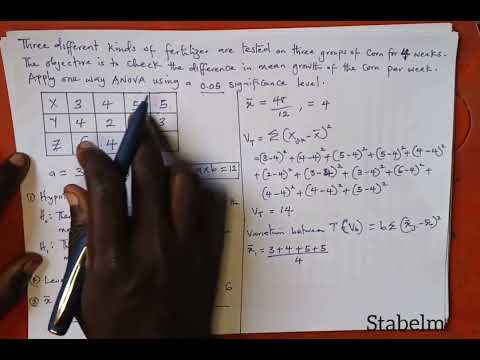 Three different kinds of fertilizer are tested on three groups of corn for 4 weeks.
The objective is to check the difference in mean growth of the corn per week.
Apply one way ANOVA using a 0.05 significance level.
X 3 4 5 5
Y 4 2 3
Z 6 4
a = 3
axb = 12
① Hypot
H₀: The
H₁: The
② Leve
③ x̄
6
x̄ = 48/12, = 4
V_T = Σ(X_jk - x̄)²
= (3-4)² + (4-4)² + (5-4)² + (5-4)² + (4-4)²
+ (2-4)² + (3-4)² + (6-4)² +
(4-4)² + (4-4)² + (5-4)²
V_T = 14
Variation between T (V_b) = b Σ(x̄_j - x̄)²
x̄₁ = 3+4+5+5 / 4
Stabelm